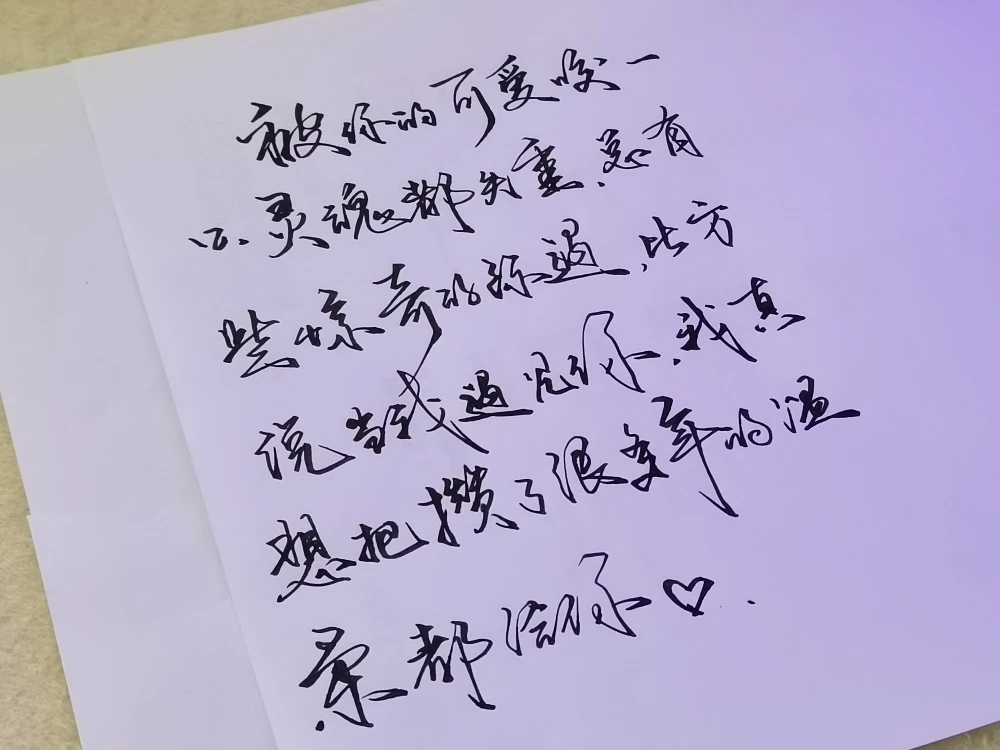 被你的可爱咬一
口.灵魂都失重.总有
些惊奇的际遇.比方
说当我遇见你.我真
想把攒了很多年的温
柔都给你♡.